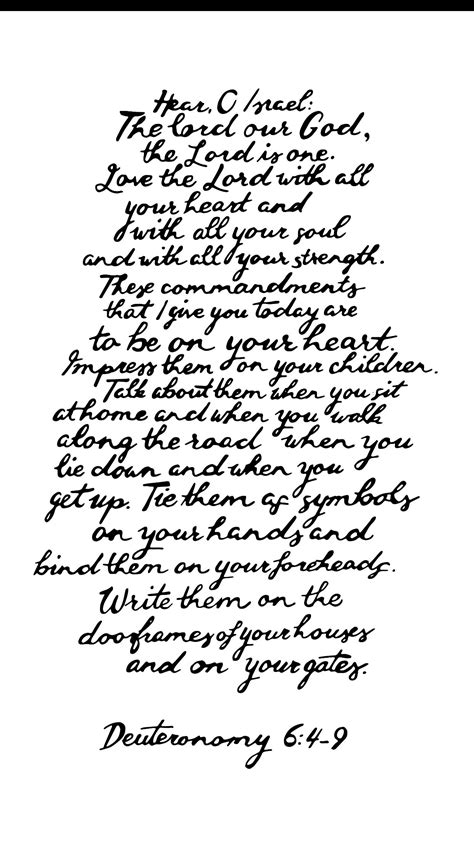 Hear, O Israel:
The lord our God,
the Lord is one.
Love the Lord with all
your heart and
with all your soul
and with all your strength.
These commandments
that I give you today are
to be on your heart.
Impress them on your children.
Talk about them when you sit
at home and when you walk
along the road when you
lie down and when you
get up. Tie them as symbols
on your hands and
bind them on your foreheads.
Write them on the
doorframes of your houses
and on your gates.
Deuteronomy 6:4-9